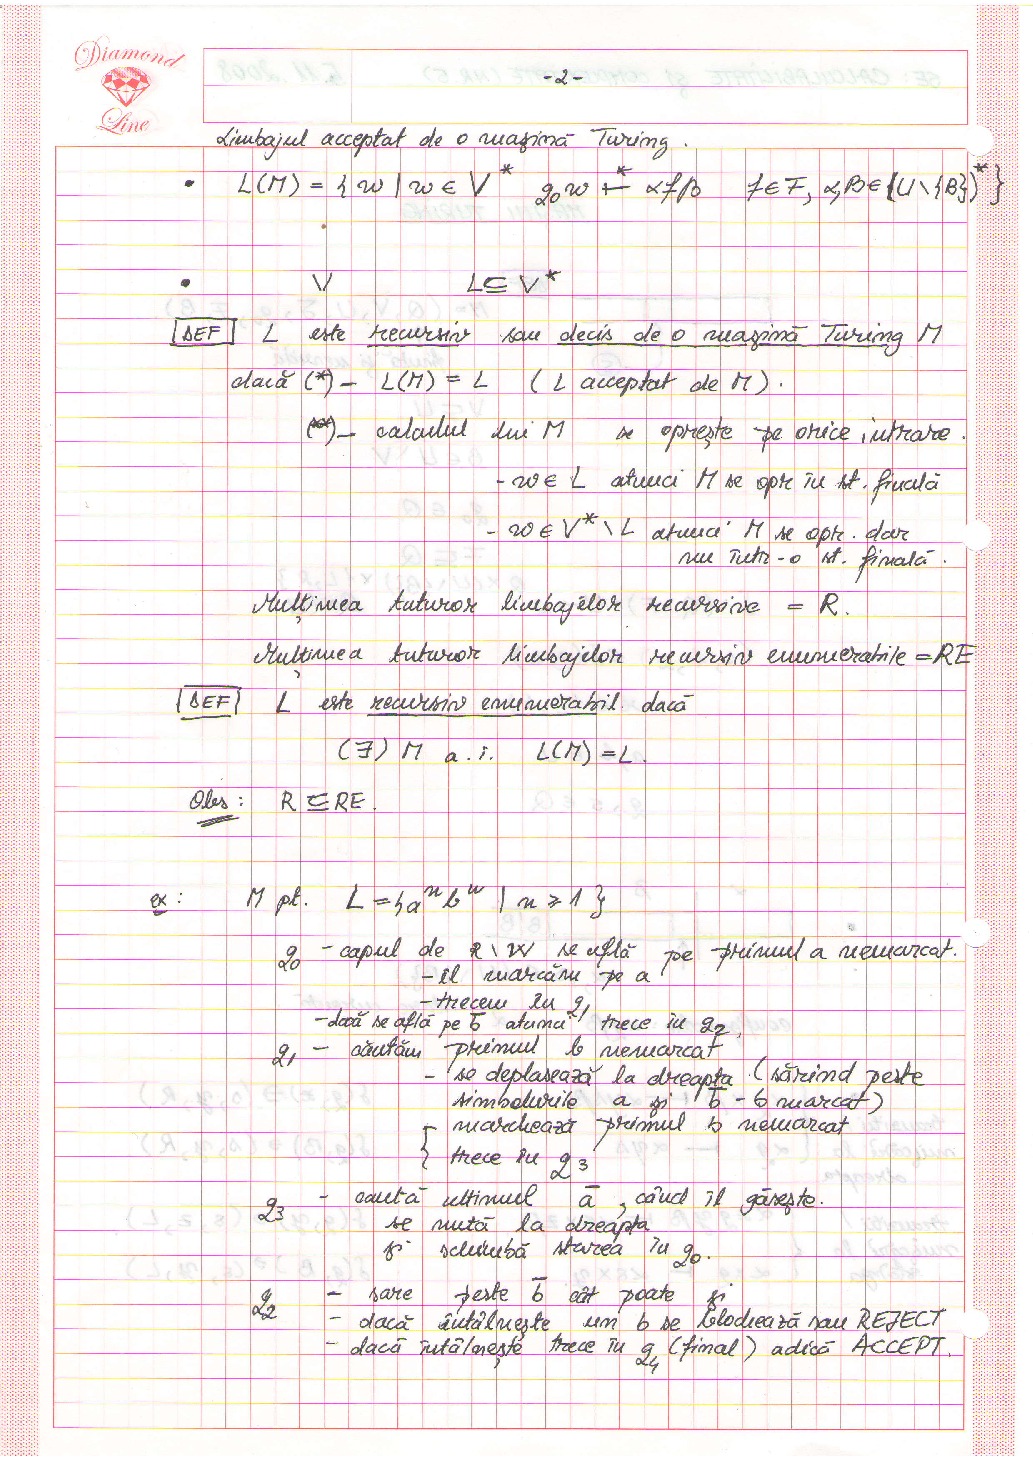 Diamond
Line
-2-
Limbajul acceptat de o mașină Turing.
• L(M) = { w | w ∈ V* q₀w ⊢* αfβ f ∈ F, α,β ∈ (U\{B})* }
• V L ⊆ V*
DEF L este recursiv sau decis de o mașină Turing M
dacă (*) – L(M) = L ( L acceptat de M ).
(**) – calculul lui M se oprește pe orice intrare.
- w ∈ L atunci M se opr în st. finală
- w ∈ V* \ L atunci M se opr. dar
nu într-o st. finală.
Mulțimea tuturor limbajelor recursive = R.
Mulțimea tuturor limbajelor recursiv enumerabile = RE
DEF L este recursiv enumerabil dacă
(∃) M a.i. L(M) = L.
Obs: R ⊆ RE.
ex: M pt. L = {aⁿbⁿ | n ≥ 1 }
q₀ - capul de R\W se află pe primul a nemarcat.
- îl marcăm pe a
- trecem în q₁
- dacă se află pe b̄ atunci trece în q₂
q₁ - căutăm primul b nemarcat
- se deplasează la dreapta (sărind peste
simbolurile a și b̄ - b marcat)
{ marchează primul b nemarcat
trece în q₃
q₃ - caută ultimul ā, când îl găsește.
se mută la dreapta
și schimbă starea în q₀.
q₂ - sare peste b̄ cât poate și
- dacă întâlnește un b se blochează sau REJECT
- dacă întâlnește trece în q₄ (final) adică ACCEPT.